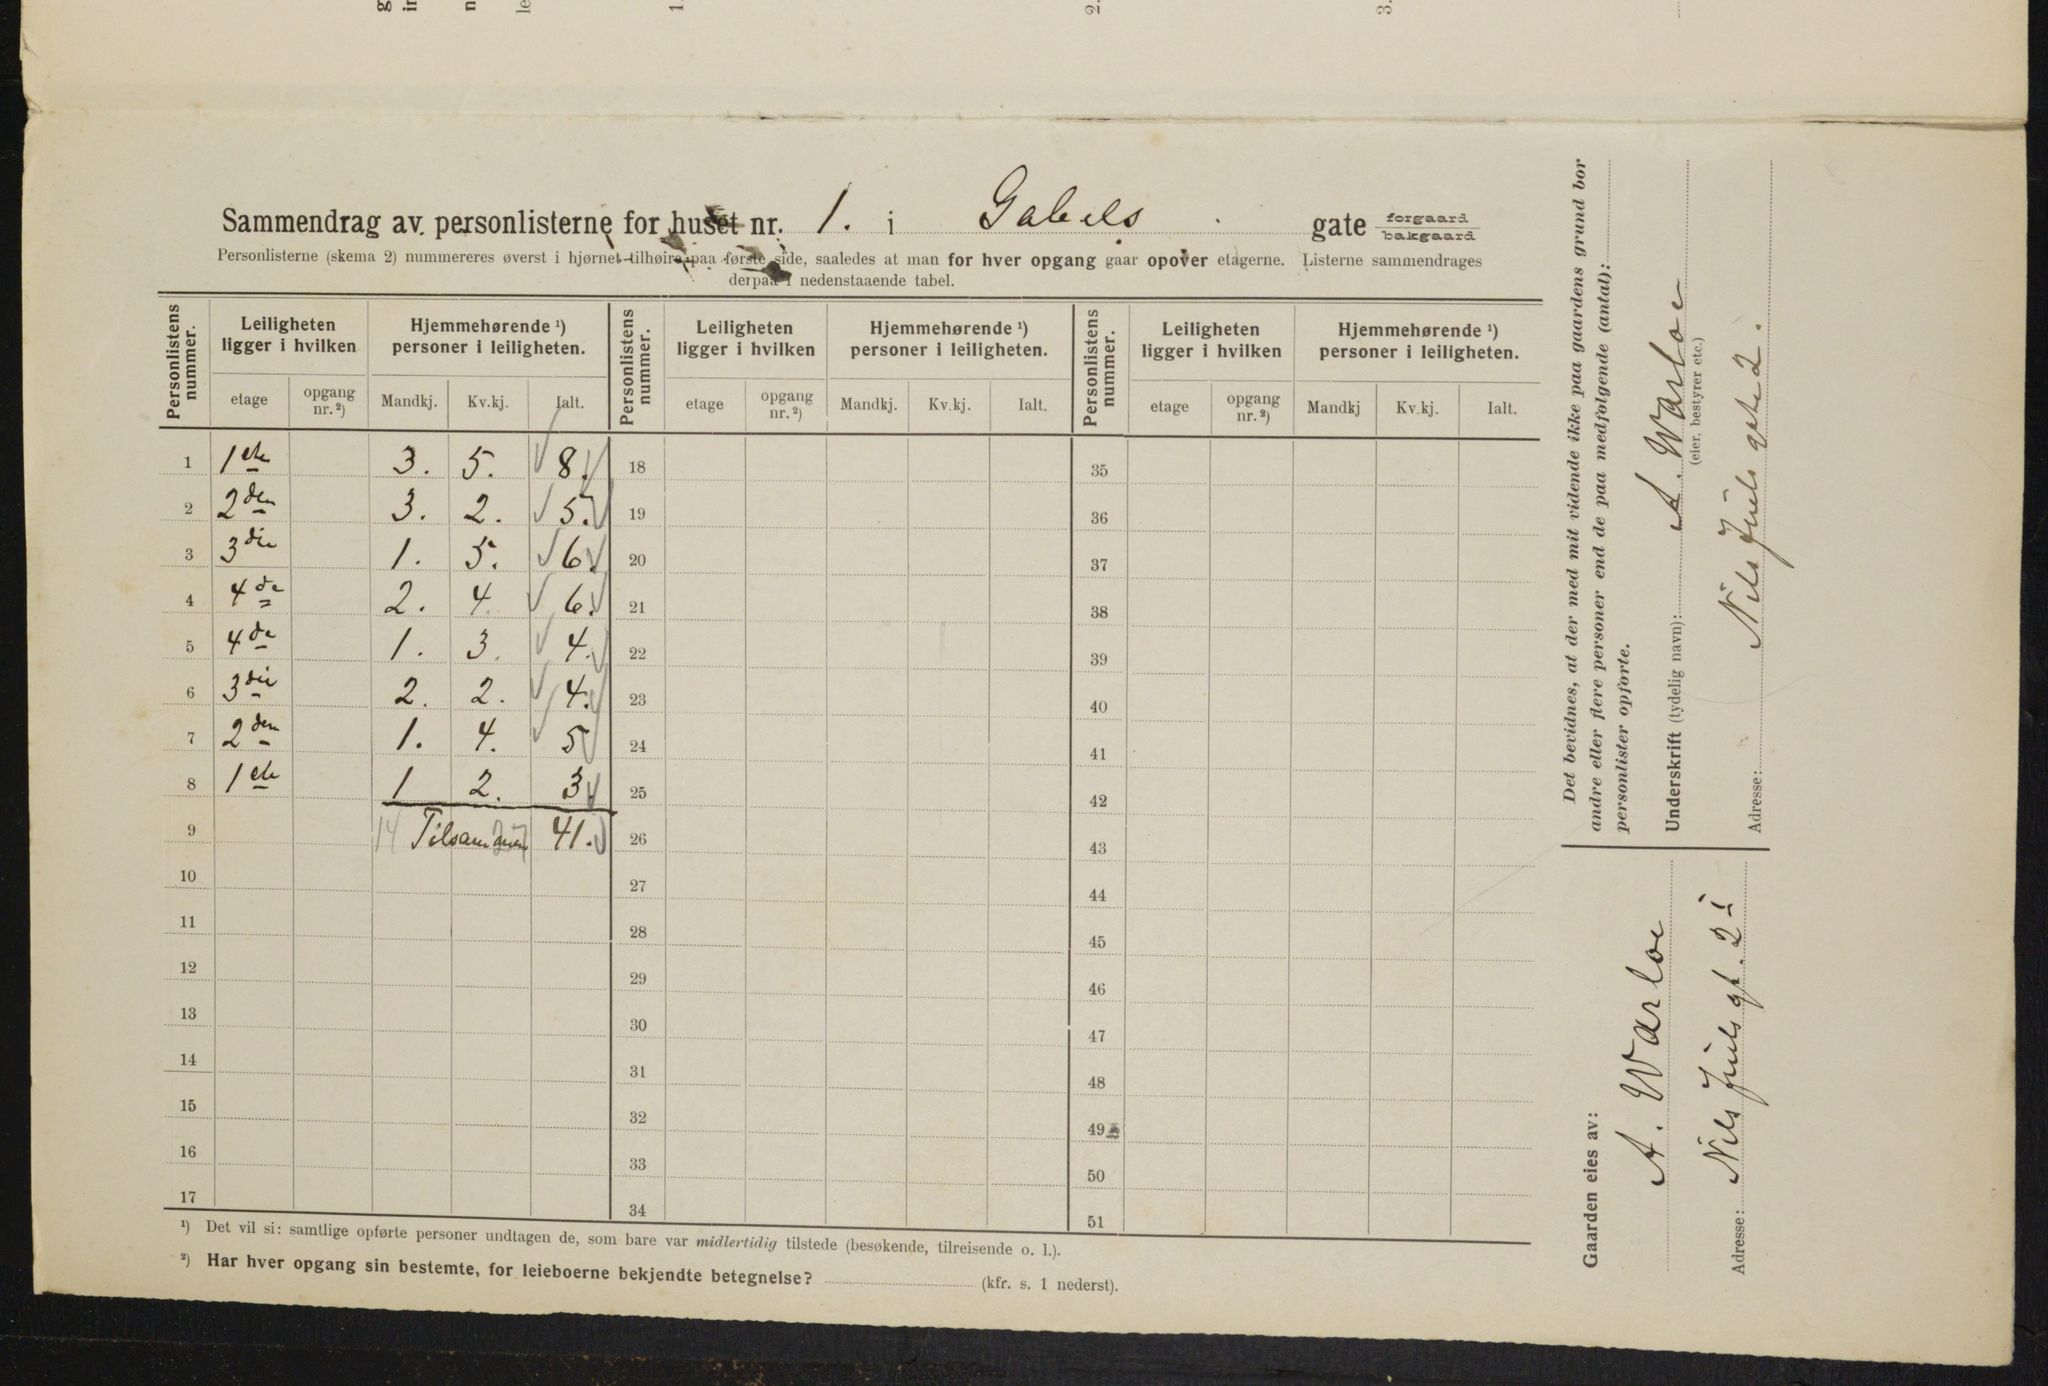 1. 2. 3.
Sammendrag av personlisterne for huset nr. 1. i Gabels gate forgaard bakgaard
Personlisterne (skema 2) nummereres øverst i hjørnet tilhøire paa første side, saaledes at man for hver opgang gaar opover etagerne. Listerne sammendrages
derpaa i nedenstaaende tabel.
Personlistens nummer. Leiligheten ligger i hvilken Hjemmehørende ¹) personer i leiligheten. Personlistens nummer. Leiligheten ligger i hvilken Hjemmehørende ¹) personer i leiligheten. Personlistens nummer. Leiligheten ligger i hvilken Hjemmehørende ¹) personer i leiligheten.
etage opgang nr. ²) Mandkj. Kv.kj. Ialt. etage opgang nr. ²) Mandkj. Kv.kj. Ialt. etage opgang nr. ²) Mandkj Kv.kj. Ialt.
1 1ste 3. 5. 8. 18 35
2 2den 3. 2. 5. 19 36
3 3die 1. 5. 6. 20 37
4 4de 2. 4. 6. 21 38
5 4de 1. 3. 4. 22 39
6 3die 2. 2. 4. 23 40
7 2den 1. 4. 5 24 41
8 1ste 1 2. 3 25 42
9 14 Tilsammen 27 41. 26 43
10 27 44
11 28 45
12 29 46
13 30 47
14 31 48
15 32 49
16 33 50
17 34 51
¹) Det vil si: samtlige opførte personer undtagen de, som bare var midlertidig tilstede (besøkende, tilreisende o. l.).
²) Har hver opgang sin bestemte, for leieboerne bekjendte betegnelse? (kfr. s. 1 nederst).
Det bevidnes, at der med mit vidende ikke paa gaardens grund bor
andre eller flere personer end de paa medfølgende (antal):
personlister opførte.
Underskrift (tydelig navn): A. Warloe
(eier, bestyrer etc.)
Adresse: Nils Juels gate 2.
Gaarden eies av:
A. Warloe
Adresse: Nils Juels gt. 2 I